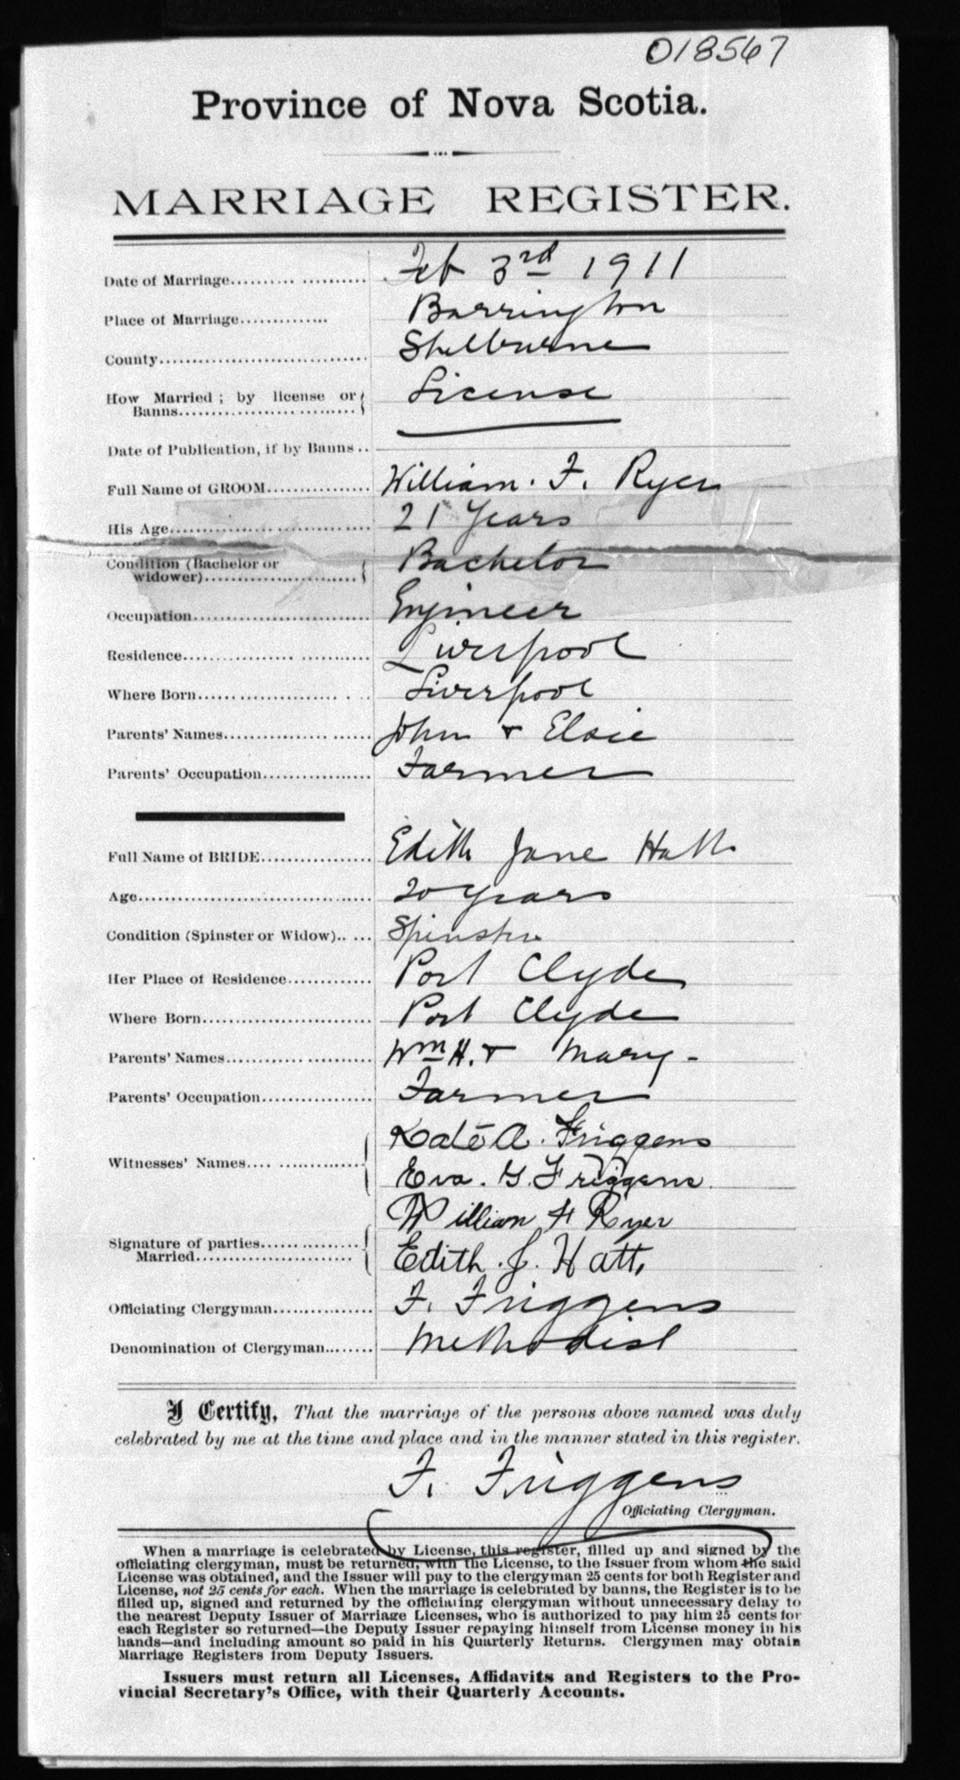 018567
Province of Nova Scotia.
MARRIAGE REGISTER.
Date of Marriage.................... Feb 3rd 1911
Place of Marriage............. Barrington
County................................ Shelburne
How Married; by license or License
Banns...........................
Date of Publication, if by Banns..
Full Name of GROOM................ William. F. Ryer
His Age.............................. 21 Years
Condition (Bachelor or Bachelor
widower)........................
Occupation............................ Engineer
Residence............................ Liverpool
Where Born........................... Liverpool
Parents' Names...................... John & Elsie
Parents' Occupation................. Farmer
Full Name of BRIDE................. Edith Jane Hatt
Age.................................... 20 years
Condition (Spinster or Widow)..... Spinster
Her Place of Residence............. Port Clyde
Where Born.......................... Port Clyde
Parents' Names...................... Wm H. & Mary -
Parents' Occupation................. Farmer
Kate A. Friggens
Witnesses' Names.................... Eva. G. Friggens
William F Ryer
Signature of parties................
Married........................ Edith. J. Hatt.
Officiating Clergyman............... F. Friggens
Denomination of Clergyman........ Methodist
I Certify, That the marriage of the persons above named was duly
celebrated by me at the time and place and in the manner stated in this register.
F. Friggens
Officiating Clergyman.
When a marriage is celebrated by License, this register, filled up and signed by the
officiating clergyman, must be returned, with the License, to the Issuer from whom the said
License was obtained, and the Issuer will pay to the clergyman 25 cents for both Register and
License, not 25 cents for each. When the marriage is celebrated by banns, the Register is to be
filled up, signed and returned by the officiating clergyman without unnecessary delay to
the nearest Deputy Issuer of Marriage Licenses, who is authorized to pay him 25 cents for
each Register so returned—the Deputy Issuer repaying himself from License money in his
hands—and including amount so paid in his Quarterly Returns. Clergymen may obtain
Marriage Registers from Deputy Issuers.
Issuers must return all Licenses, Affidavits and Registers to the Pro-
vincial Secretary's Office, with their Quarterly Accounts.